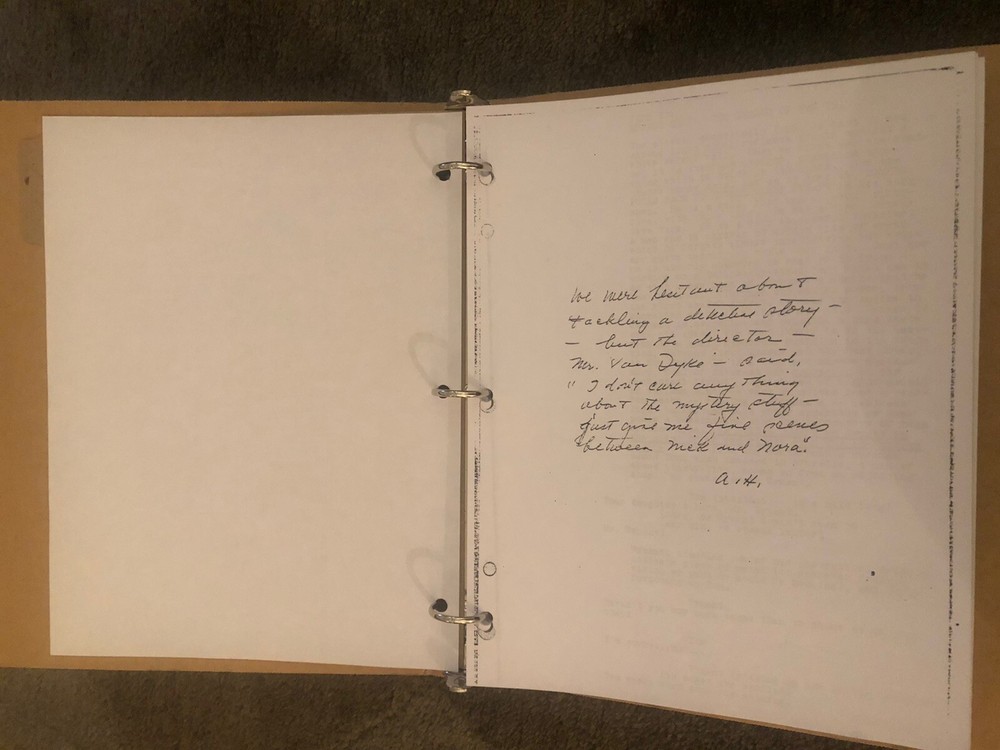 We were hesitant about
tackling a detective story —
— but the director —
Mr. Van Dyke — said,
" I don't care anything
about the mystery stuff —
just give me five scenes
between Nick and Nora".
A.H.